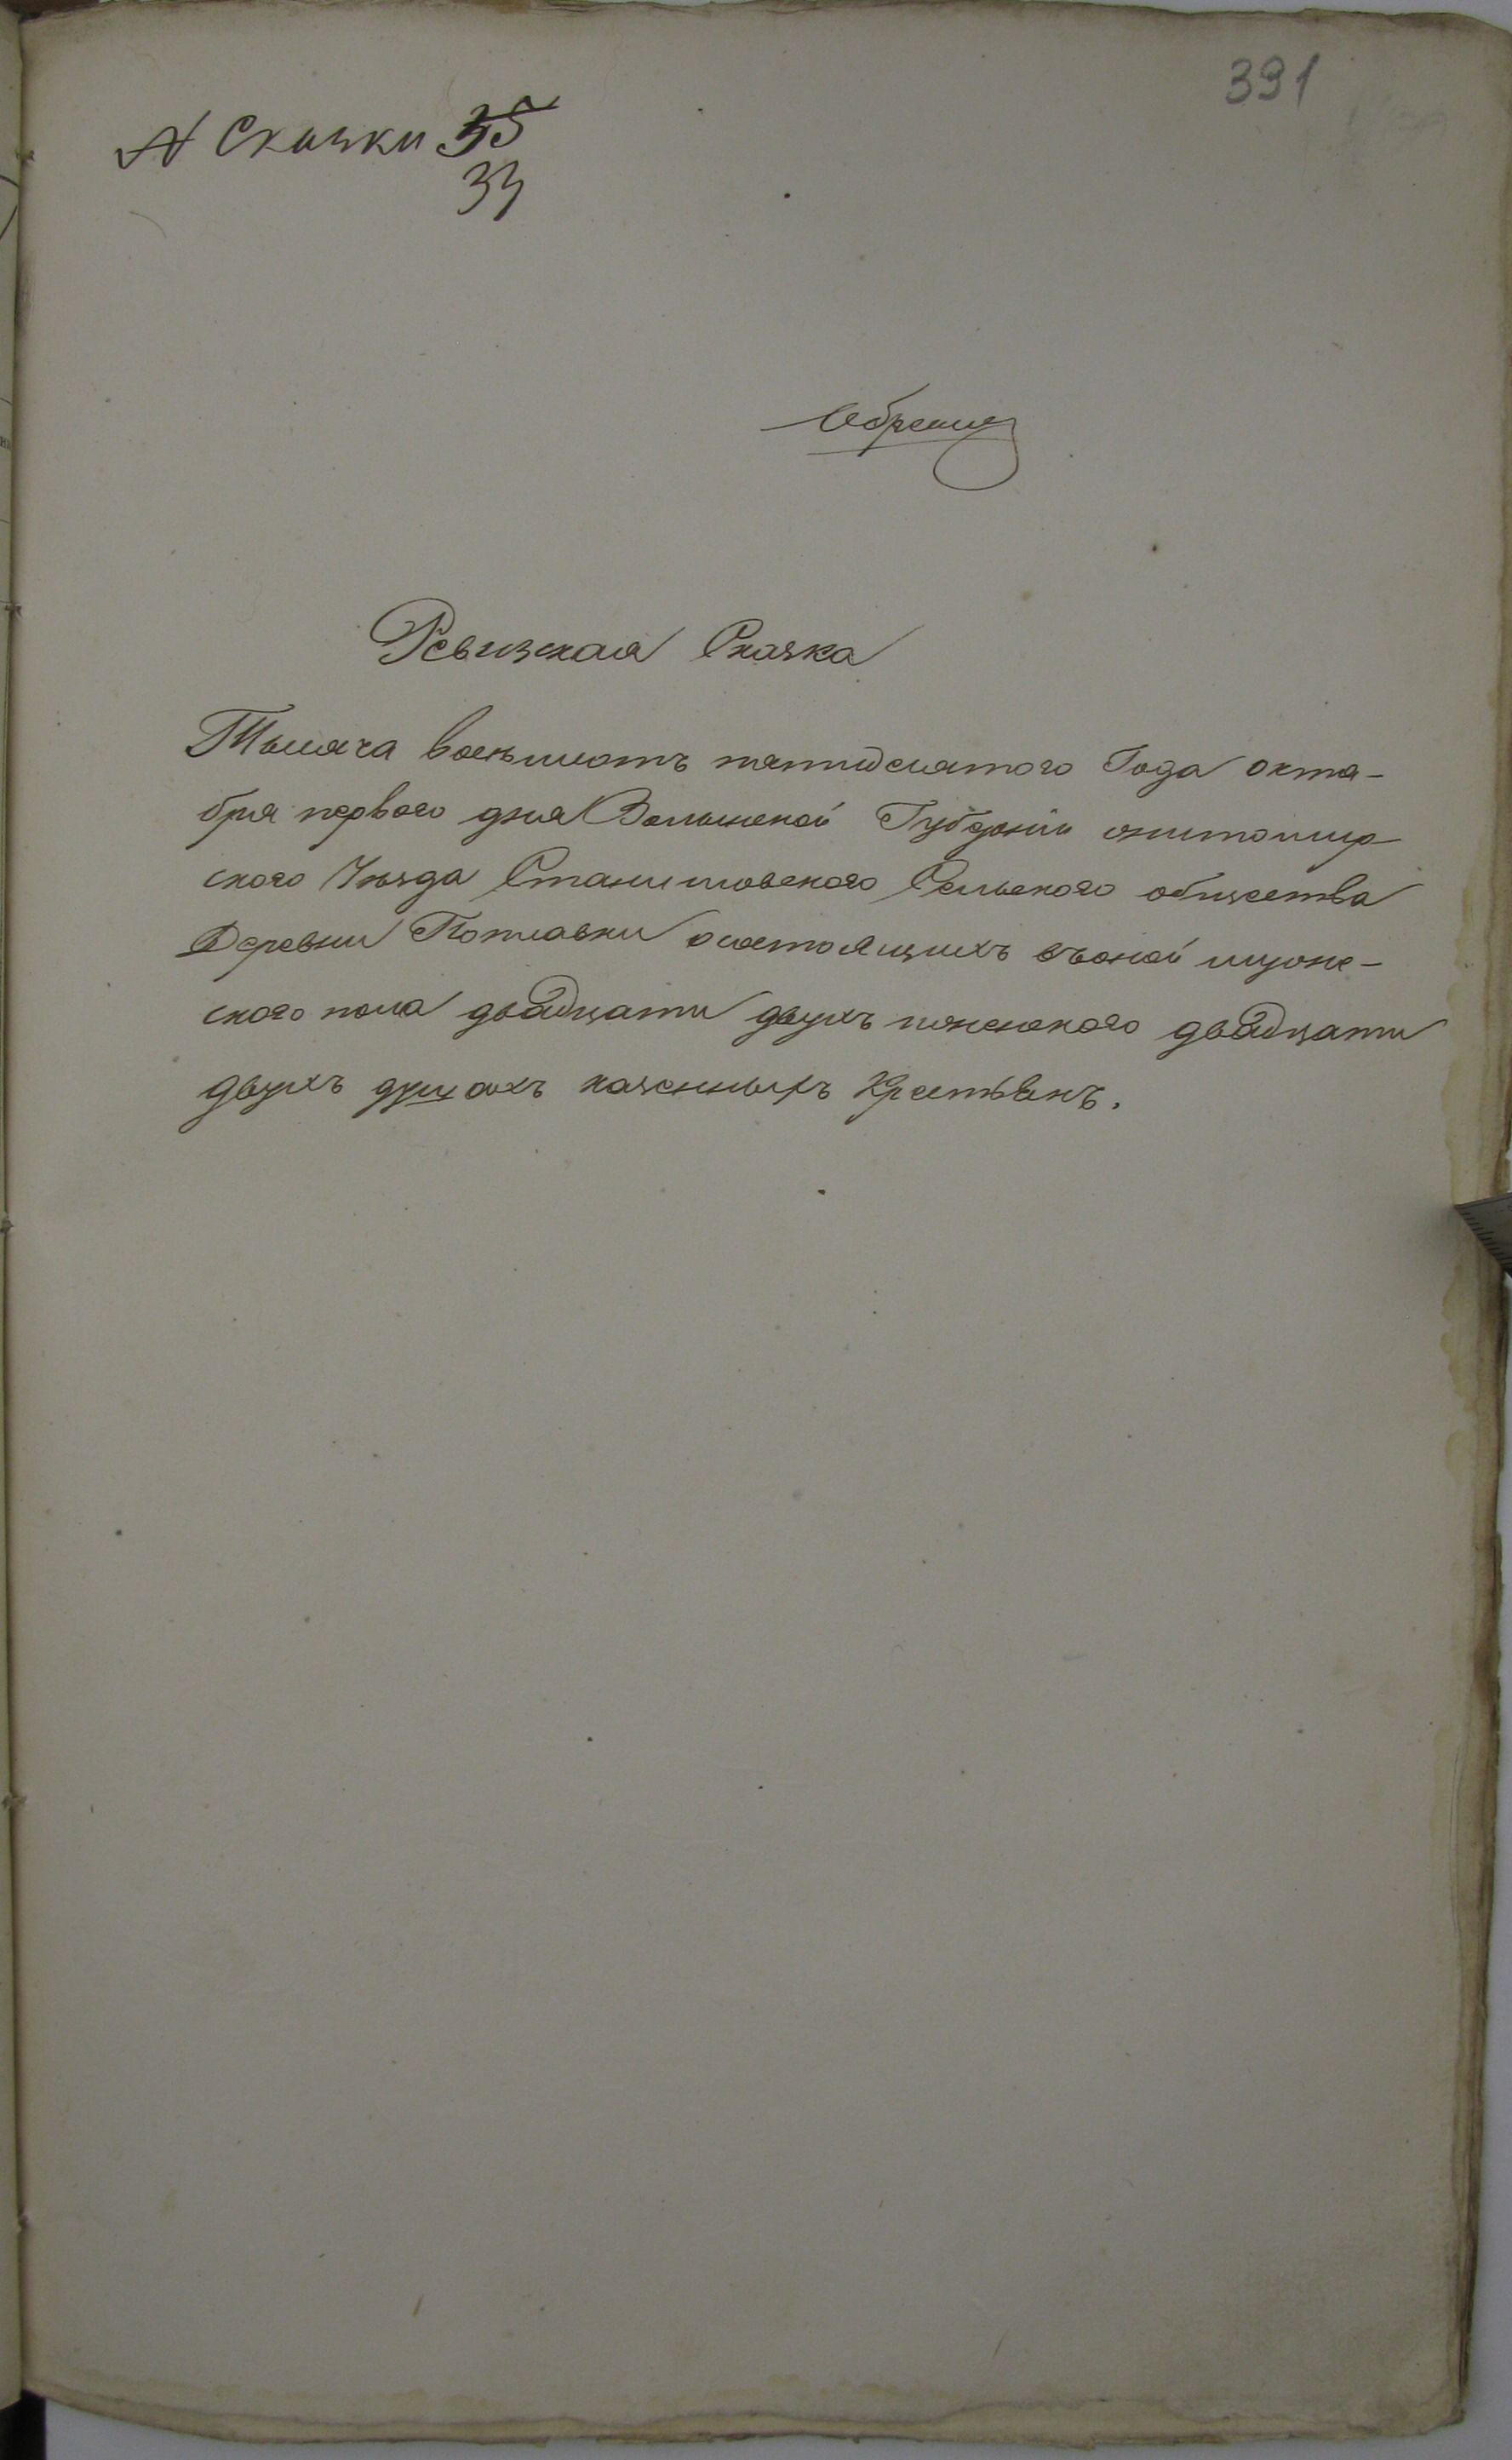 391
N Сказки 35
34
Ревизская Сказка
Тысяча восемьсотъ пятидесятого Года октя-
бря первого дня Волынской Губерніи житомир
ского Уѣзда Станишовского Сельского общества
Деревни осостоящихъ въоной мужс-
ского пола двадцати двухъ иженского двадцати
двухъ душахъ казенныхъ Крестьянъ.